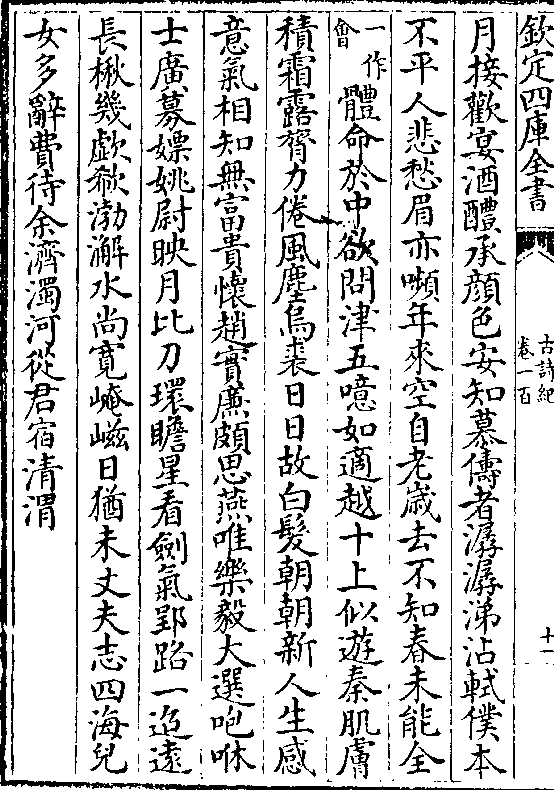 欽定四庫全書
古詩紀
卷一百
十一
月接歡宴酒醴承顔色安知慕儔者潺潺涕沾軾僕本
不平人悲愁眉亦嚬年來空自老歳去不知春未能全
一作會體命於中欲問津五噫如適越十上似遊秦肌膚
積霜露膂力倦風塵烏裘日日故白髮朝朝新人生感
意氣相知無富貴懷趙實廉頗思燕唯樂毅大選咆咻
士廣募嫖姚尉映月比刀環瞻星看劍氣郢路一迢遠
長楸幾歔欷渤澥水尚寛崦嵫日猶未丈夫志四海兒
女多辭費待余濟濁河從君宿清渭